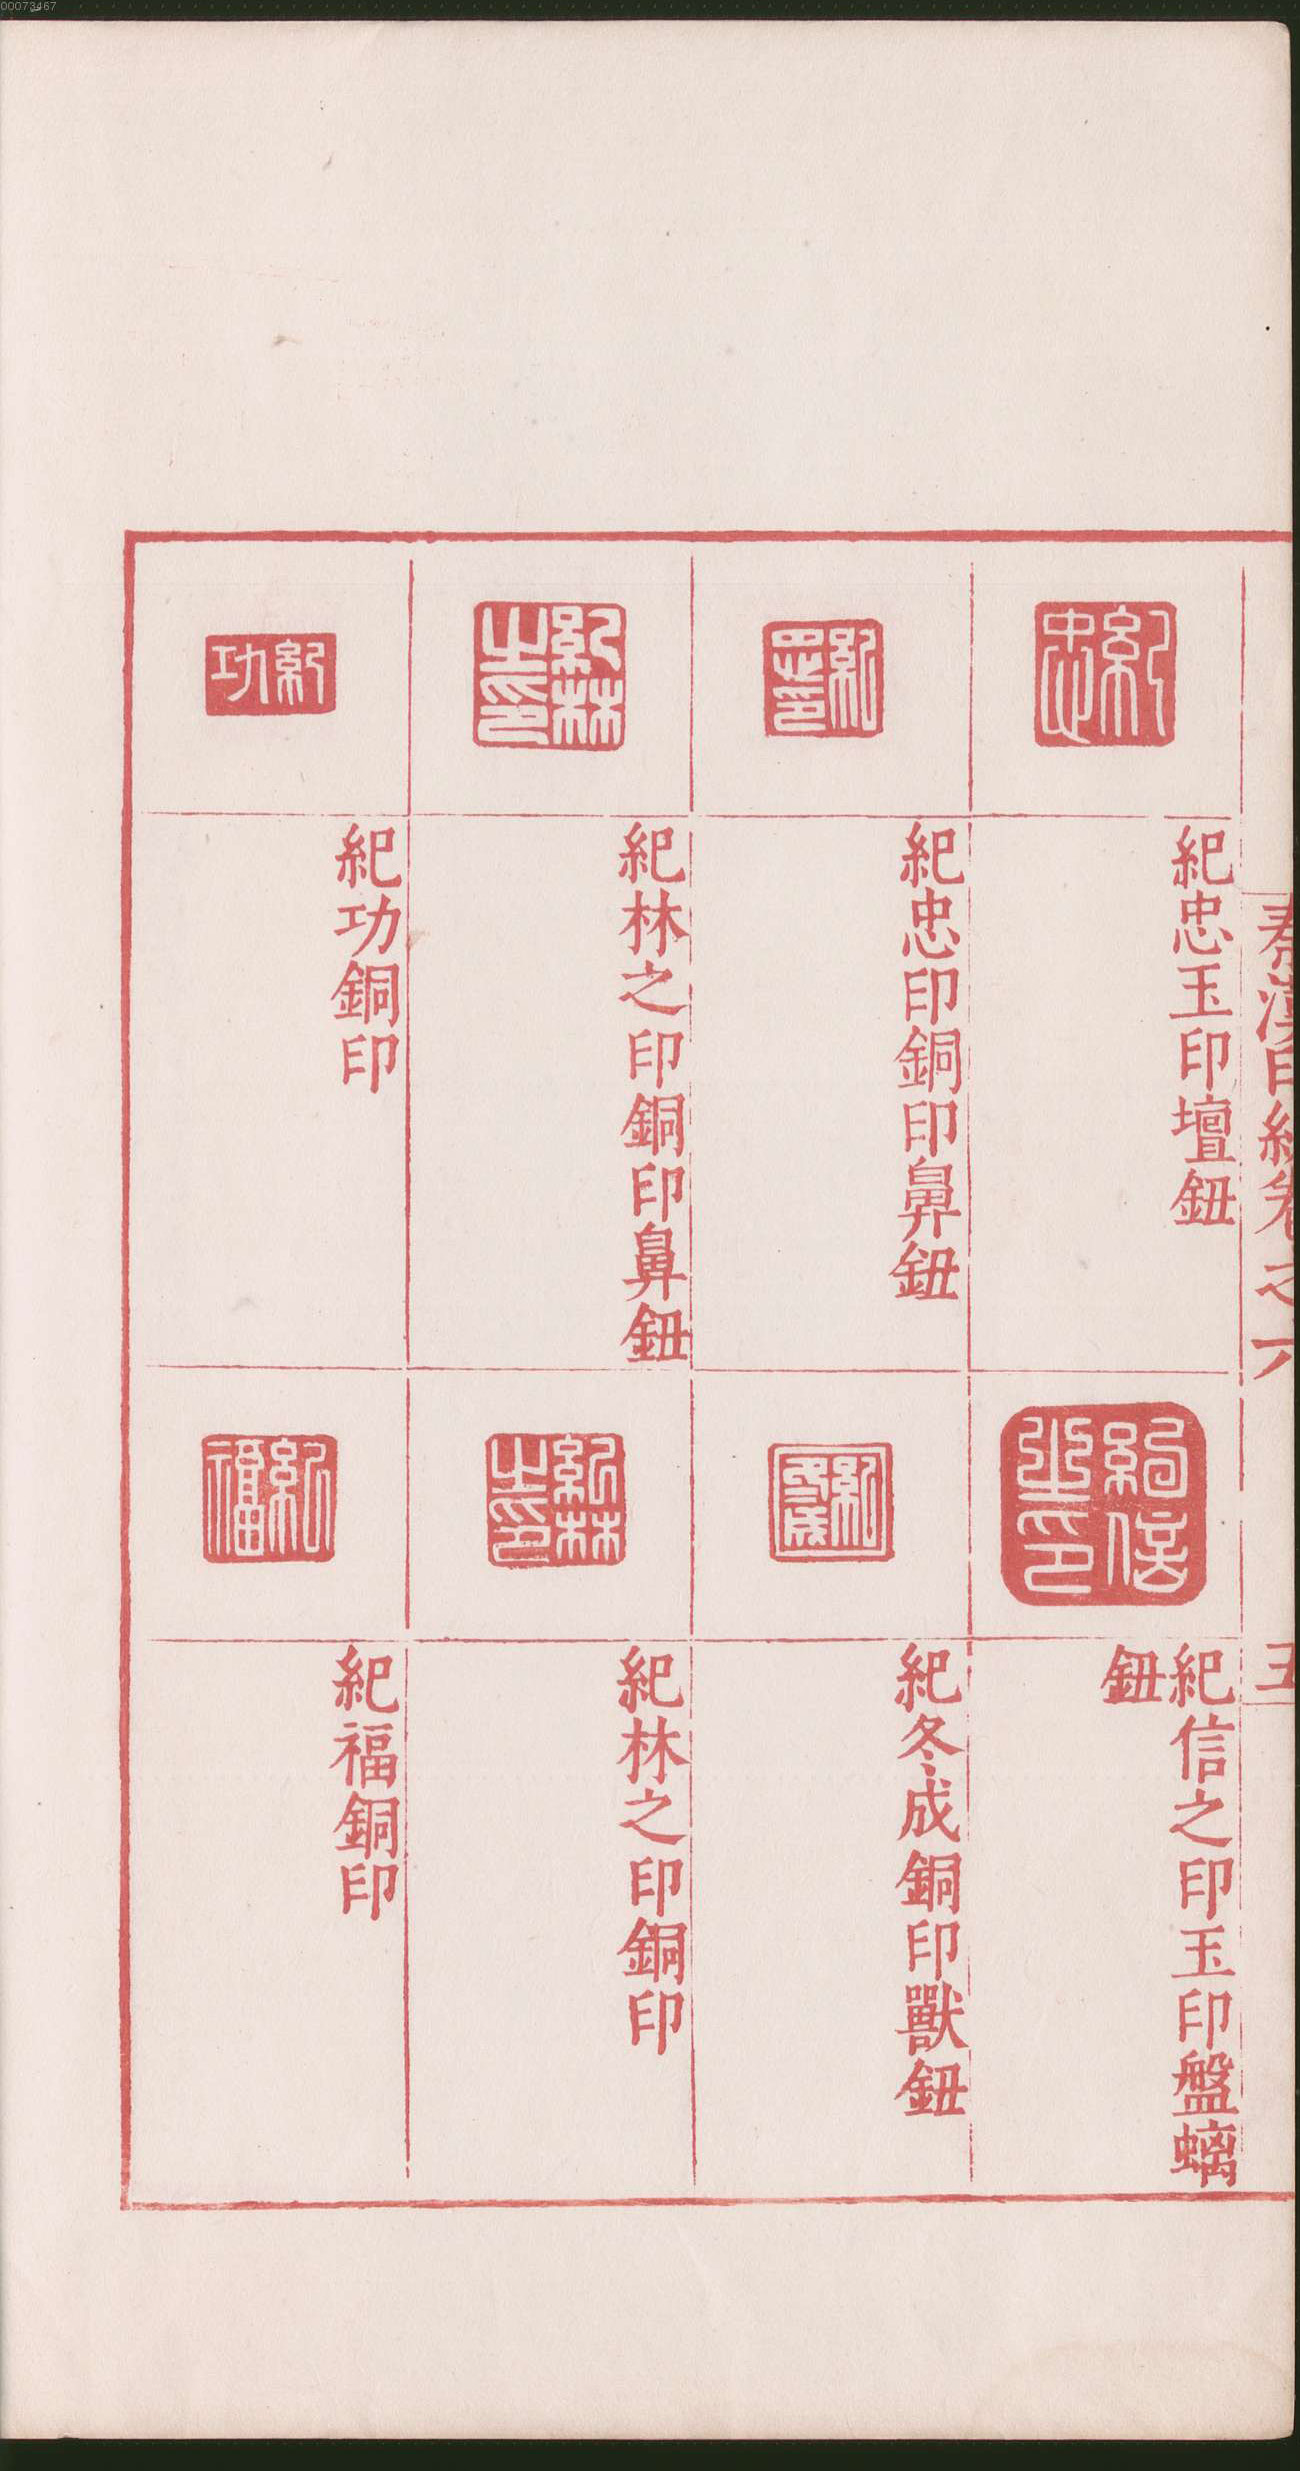 00073467
秦漢印統卷之六
五
紀忠
紀忠玉印壇鈕
紀信之印
紀信之印玉印盤螭
鈕
紀忠印
紀忠印銅印鼻鈕
紀冬成
紀冬成銅印獸鈕
紀林之印
紀林之印銅印鼻鈕
紀林之印
紀林之印銅印
紀功
紀功銅印
紀福
紀福銅印